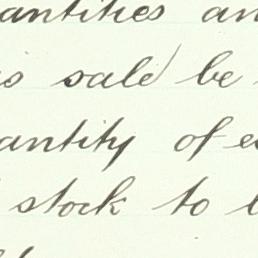 antities an
is sale be
antity of e
stock to